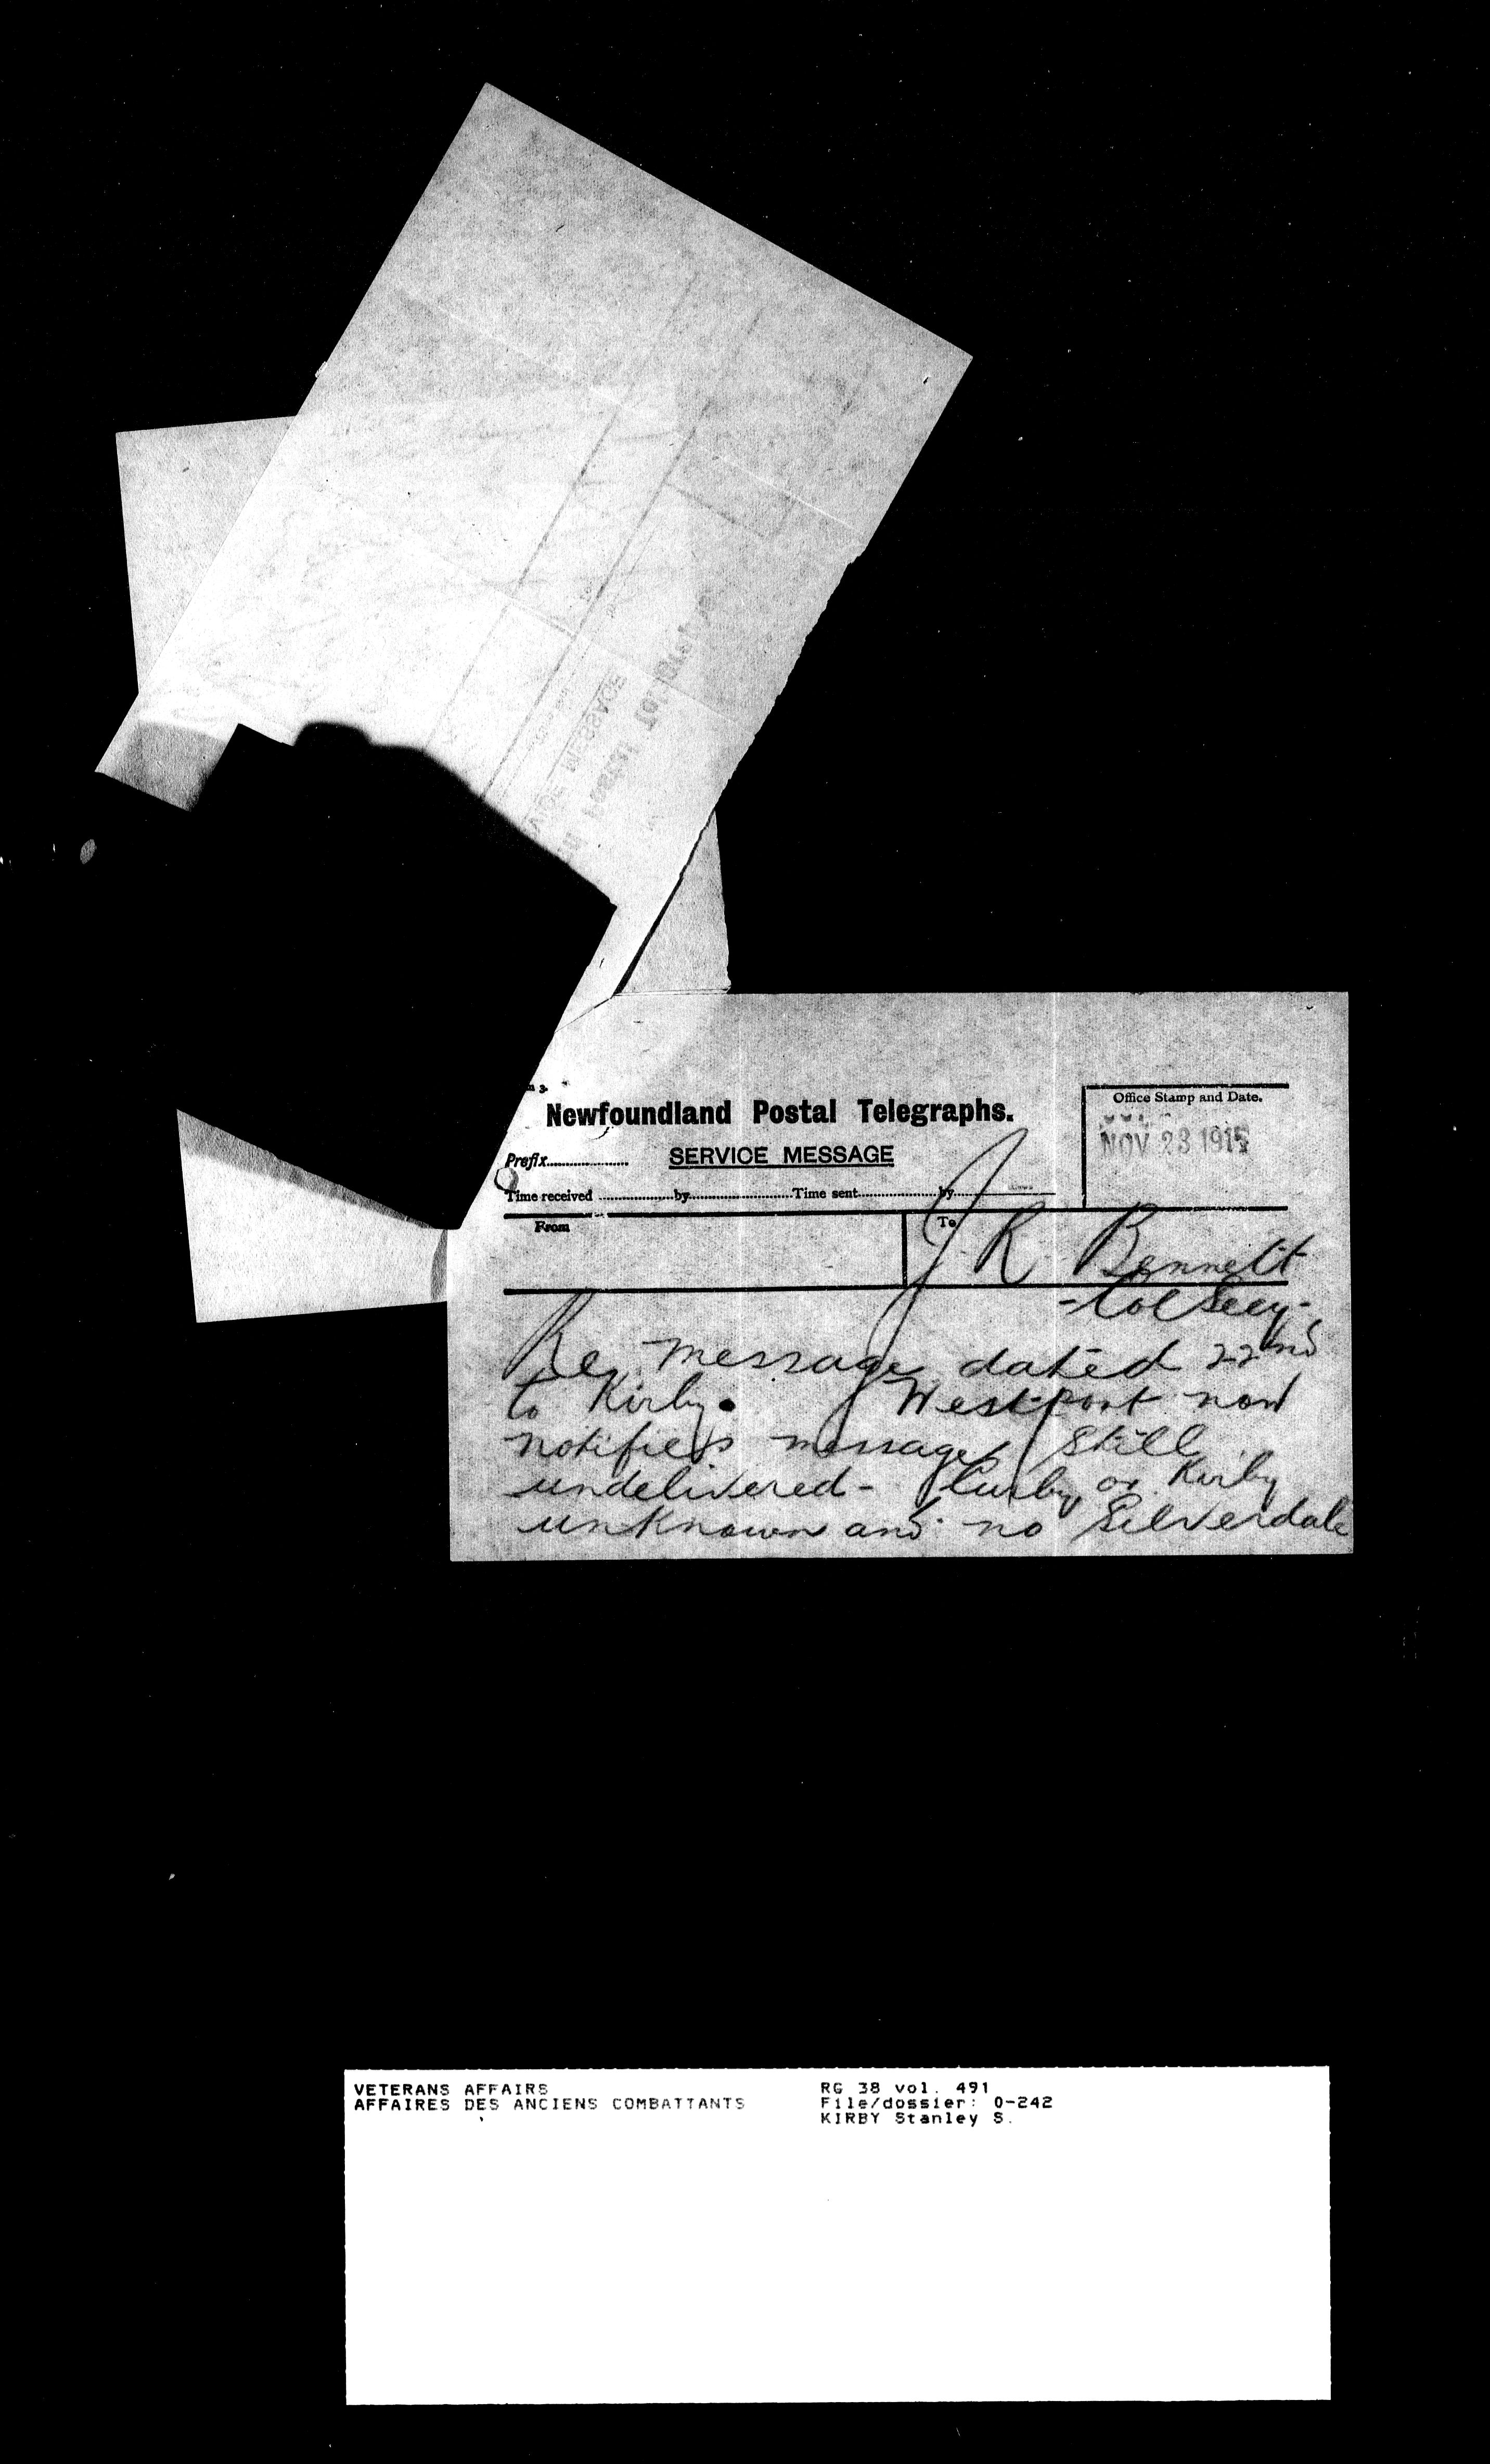 Newfoundland Postal Telegraphs.
Office Stamp and Date.
NOV 23 1915
Prefix
SERVICE MESSAGE
Time received by Time sent by
From
To
J. R. Bennett
- Col Secy -
Re message dated 22nd
to Kirby. Westport now
notifies message still
undelivered - Curby or Kirby
unknown and no Silverdale
VETERANS AFFAIRS
AFFAIRES DES ANCIENS COMBATTANTS
RG 38 vol. 491
File/dossier: 0-242
KIRBY Stanley S.